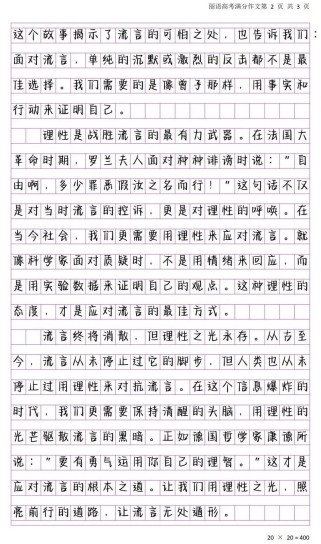 丽语高考满分作文第 2 页 共 3 页
这个故事揭示了流言的可怕之处，也告诉我们：
面对流言，单纯的沉默或激烈的反击都不是最
佳选择。我们需要的是像曾子那样，用事实和
行动来证明自己。
理性是战胜流言的最有力武器。在法国大
革命时期，罗兰夫人面对种种诽谤时说："自
由啊，多少罪恶假汝之名而行！"这句话不仅
是对当时流言的控诉，更是对理性的呼唤。在
当今社会，我们更需要用理性来应对流言。就
像科学家面对质疑时，不是用情绪来回应，而
是用实验数据来证明自己的观点。这种理性的
态度，才是应对流言的最佳方式。
流言终将消散，但理性之光永存。从古至
今，流言从未停止过它的脚步，但人类也从未
停止过用理性来对抗流言。在这个信息爆炸的
时代，我们更需要保持清醒的头脑，用理性的
光芒驱散流言的黑暗。正如德国哲学家康德所
说："要有勇气运用你自己的理智。"这才是
应对流言的根本之道。让我们用理性之光，照
亮前行的道路，让流言无处遁形。
20 × 20 = 400